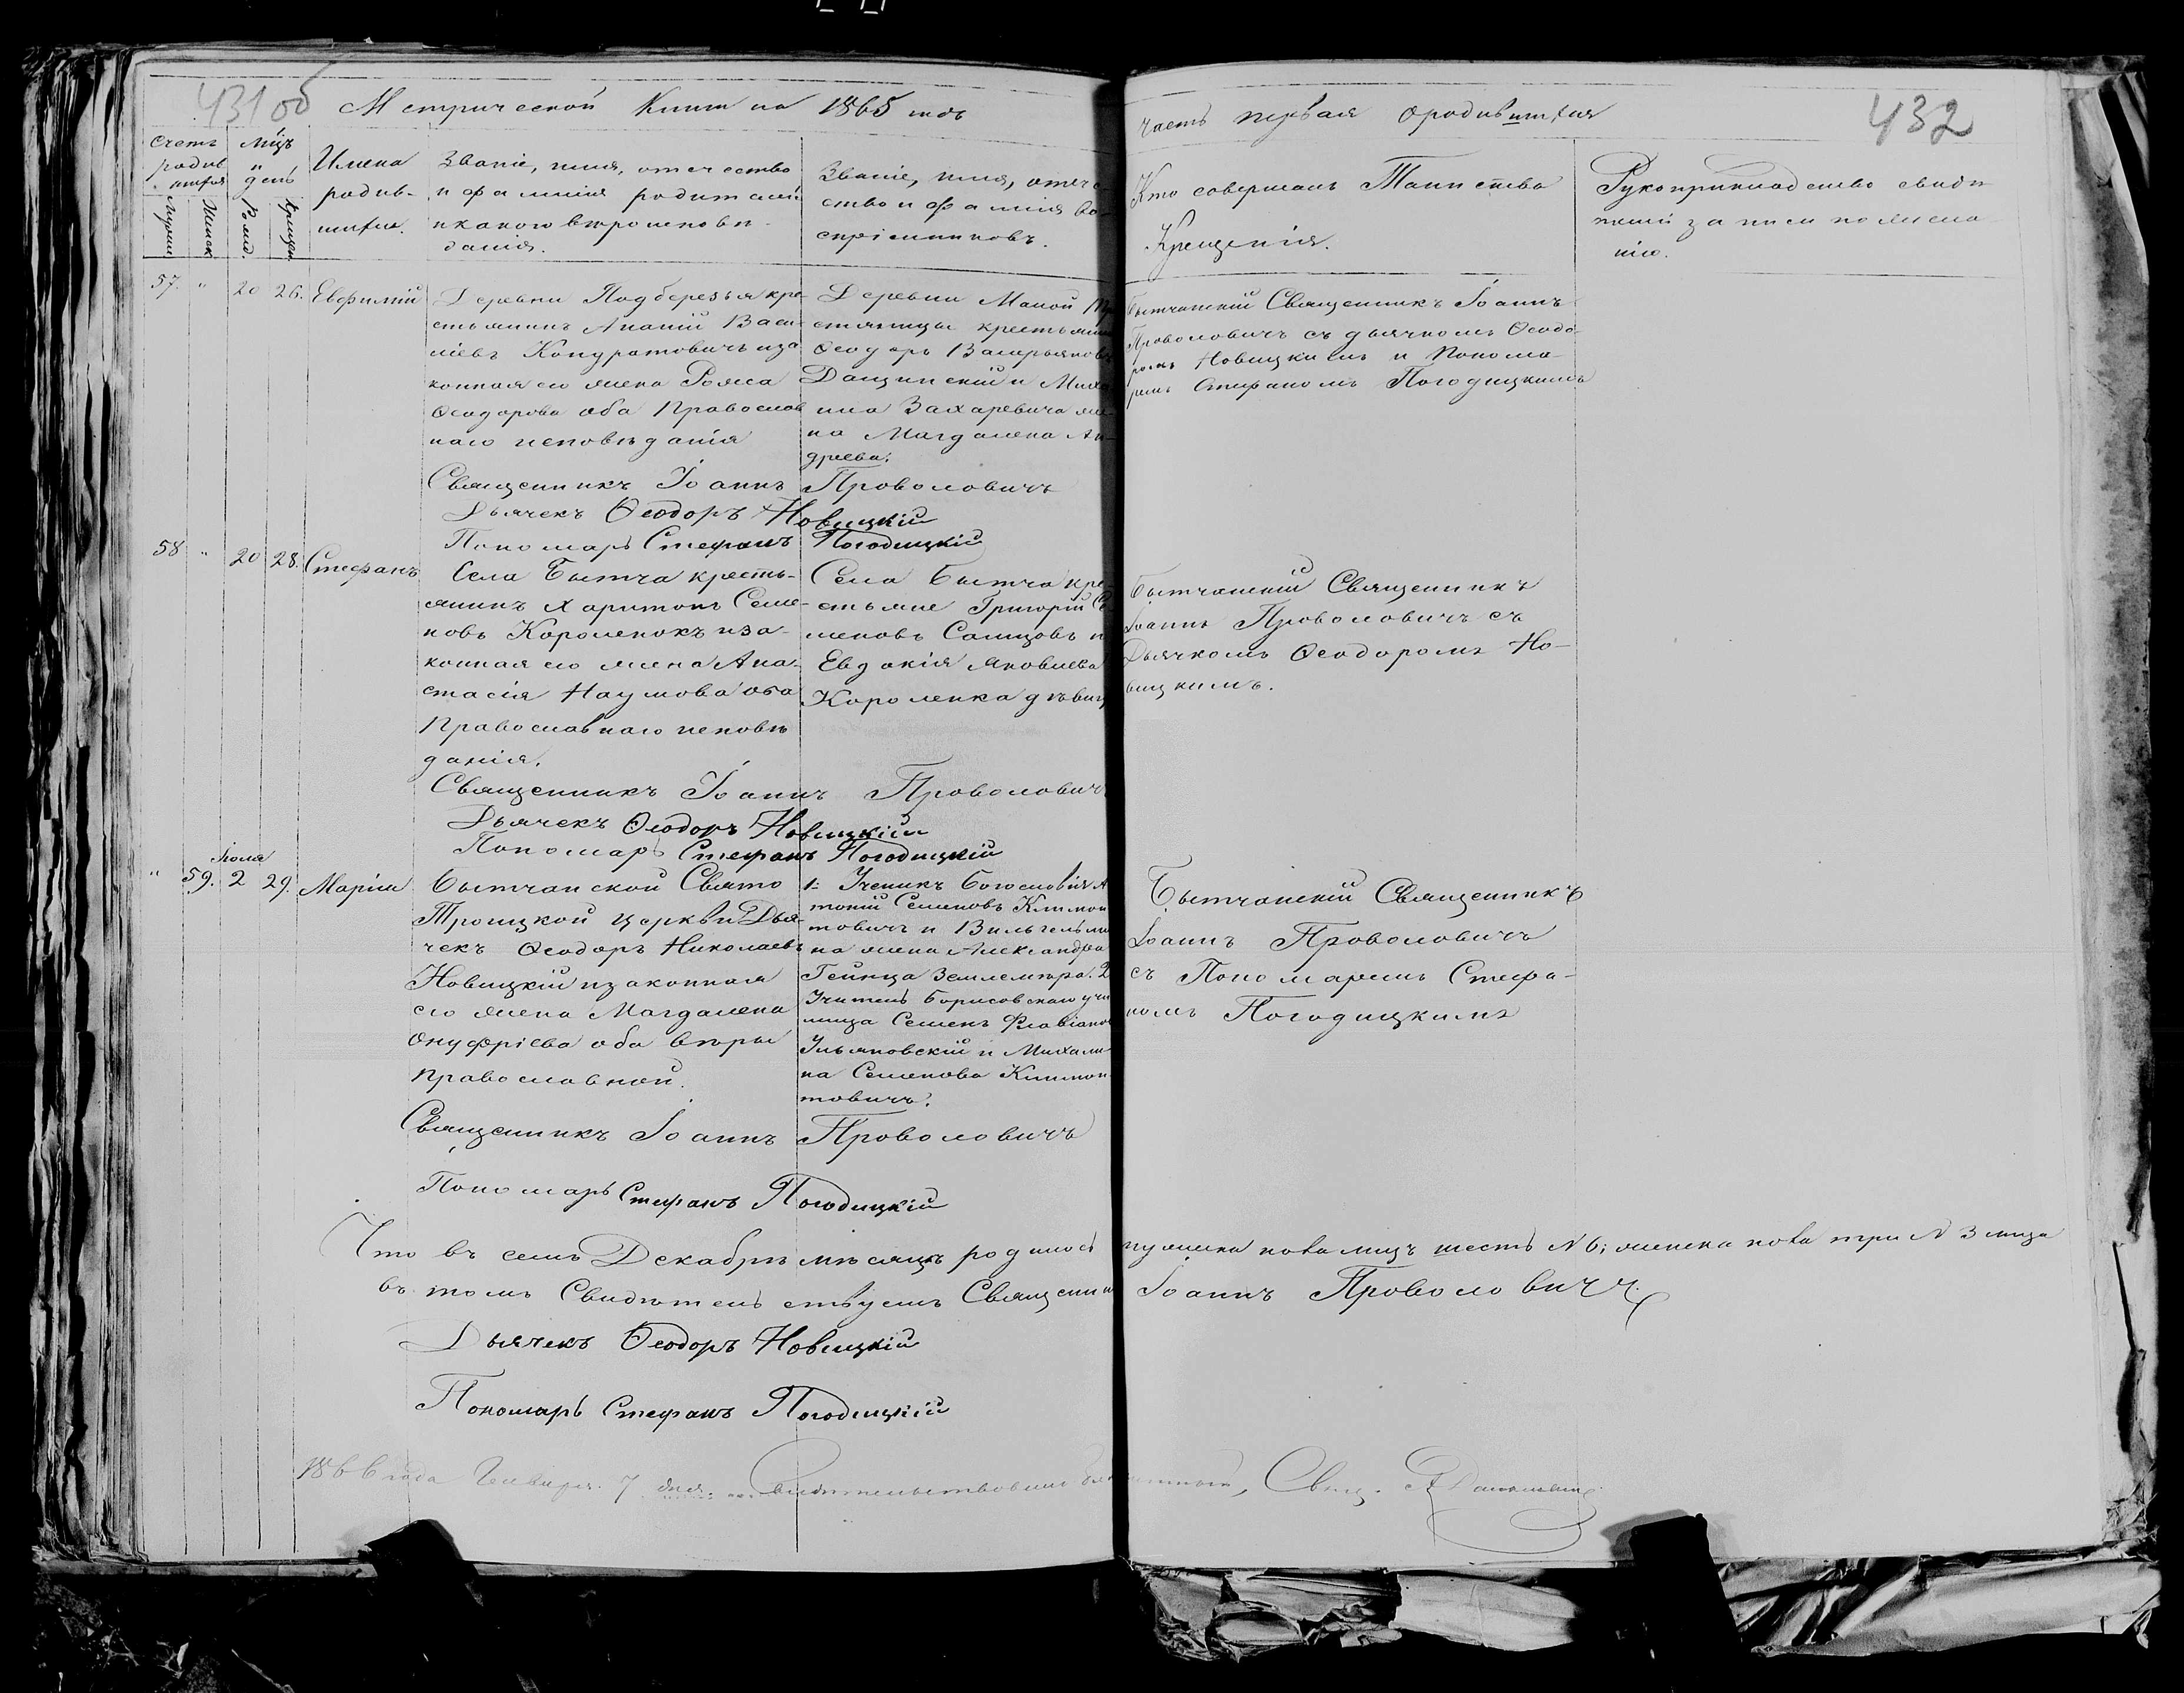 431 об
Метрической Книги на 1865 годъ
часть первая о родившихся
432
Счетъ родив шихся
Мужеск
Женск
Мѣцъ и день
Рожд.
Крещен
Имена родив- шихся.
Званіе, имя, отчество
и фамилія родителей
и какого вѣроисповѣ-
данія.
Званіе, имя, отче-
ство и фамилія во-
спріемниковъ.
Кто совершалъ Таинство
Крещенія.
Рукоприкладство свидѣ
телей записи по жела
нію.
57. " 20 26. Евфимій
Деревни Подберезья кре-
стьянинъ Ананій Васи-
ліевъ Кондратовичъ и за
конная его жена Роза
Ѳеодорова оба Православ
наго исповѣданія
Деревни Малой
стьяницы крестьянин
Ѳеодоръ Валерьянов
Дащинскій и Миха
ила Захаревича же-
на Магдалена Ан-
дреева.
Бытчанскій Священникъ Іоаннъ
Проволовичъ съ дьячкомъ Ѳеодо-
ромъ Новицкимъ и Понома-
ремъ Стефаномъ Погодицкимъ
Священникъ Іоаннъ Проволовичъ
Дьячекъ Ѳеодоръ Новицкій
Пономарь Стефанъ Погодицкій
58 " 20 28. Стефанъ
Села Бытча кресть-
янинъ Харитонъ Семе-
новъ Короленокъ и за-
конная его жена Ана-
стасія Наумова оба
Православнаго исповѣ
данія.
Села Бытча кре-
стьяне Григорій Се
меновъ Самцовъ и
Евдокія Яковлева
Короленка дѣвиц
Бытчанскій Священникъ
Іоаннъ Проволовичъ съ
Дьячкомъ Ѳеодоромъ Но-
вицкимъ.
Священникъ Іоаннъ Проволович
Дьячекъ Ѳеодоръ Новицкій
Пономарь Стефанъ Погодицкій
" 59. 2 29. Марія
Бытчанской Свято
Троицкой церкви Дья-
чекъ Ѳеодоръ Николаевъ
Новицкій и законная
его жена Магдалена
Онуфріева оба вѣры
православной.
1: Ученикъ Богословія Ан
тоній Семеновъ Климон
товичъ и Вильгельми
на жена Александра
Гейнца Землемѣра. 2
Учитель Борисовскаго учи
лища Семенъ Флавіанов
Ульяновскій и Михали
на Семенова Климон-
товичъ.
Бытчанскій Священникъ
Іоаннъ Проволовичъ
съ Пономаремъ Стефа-
номъ Погодицкимъ
Священникъ Іоаннъ Проволовичъ
Пономарь Стефанъ Погодицкій
Что въ семъ Декабрѣ мѣсяцѣ родилось мужеска пола лицъ шесть N 6; женска пола три N 3 лица
въ томъ Свидѣтельствуемъ Священник Іоаннъ Проволовичъ
Дьячекъ Ѳеодоръ Новицкій
Пономарь Стефанъ Погодицкій
1866 года Января 7 дня. Свидѣтельствовалъ Благочинный, Свящ.